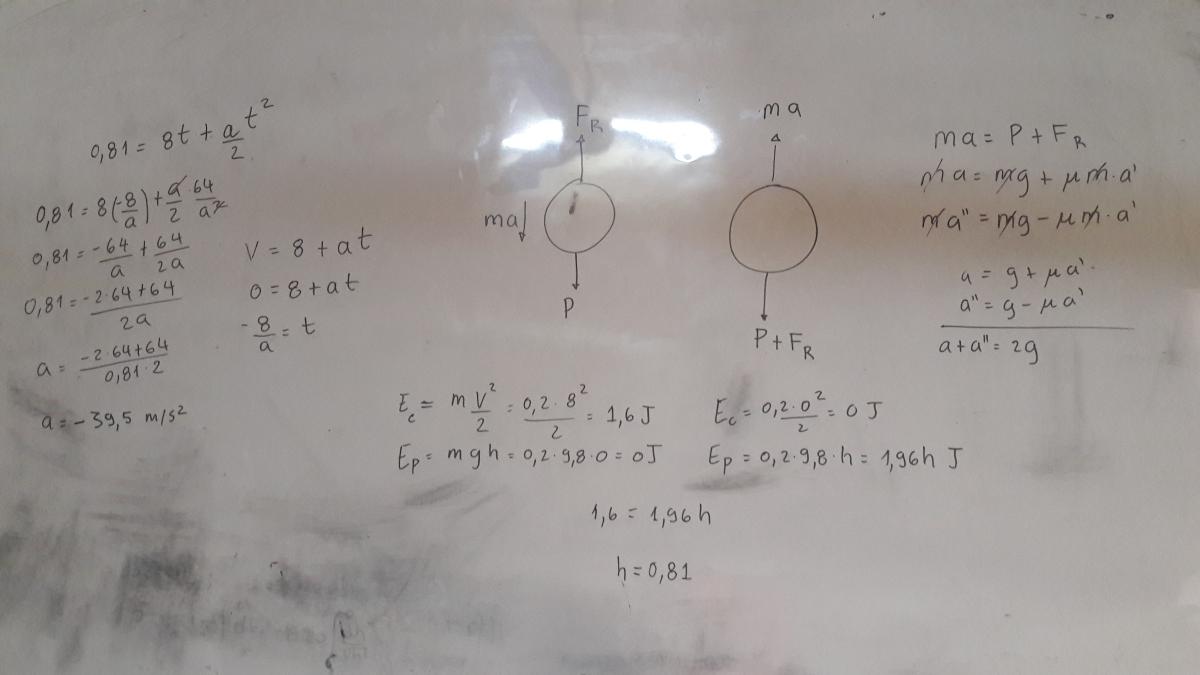 0,81 = 8t + a/2 t²
0,81 = 8(-8/a) + a/2 · 64/a²
0,81 = -64/a + 64/2a
0,81 = (-2·64+64)/2a
a = (-2·64+64)/(0,81·2)
a = -39,5 m/s²
V = 8 + at
0 = 8 + at
-8/a = t
F_R
ma
P
ma
P + F_R
ma = P + F_R
ma = mg + μm·a'
ma'' = mg - μm·a'
a = g + μa'
a'' = g - μa'
a + a'' = 2g
E_c = m V²/2 = (0,2·8²)/2 = 1,6 J
E_p = mgh = 0,2·9,8·0 = 0J
E_c = (0,2·0²)/2 = 0 J
E_p = 0,2·9,8·h = 1,96h J
1,6 = 1,96h
h = 0,81